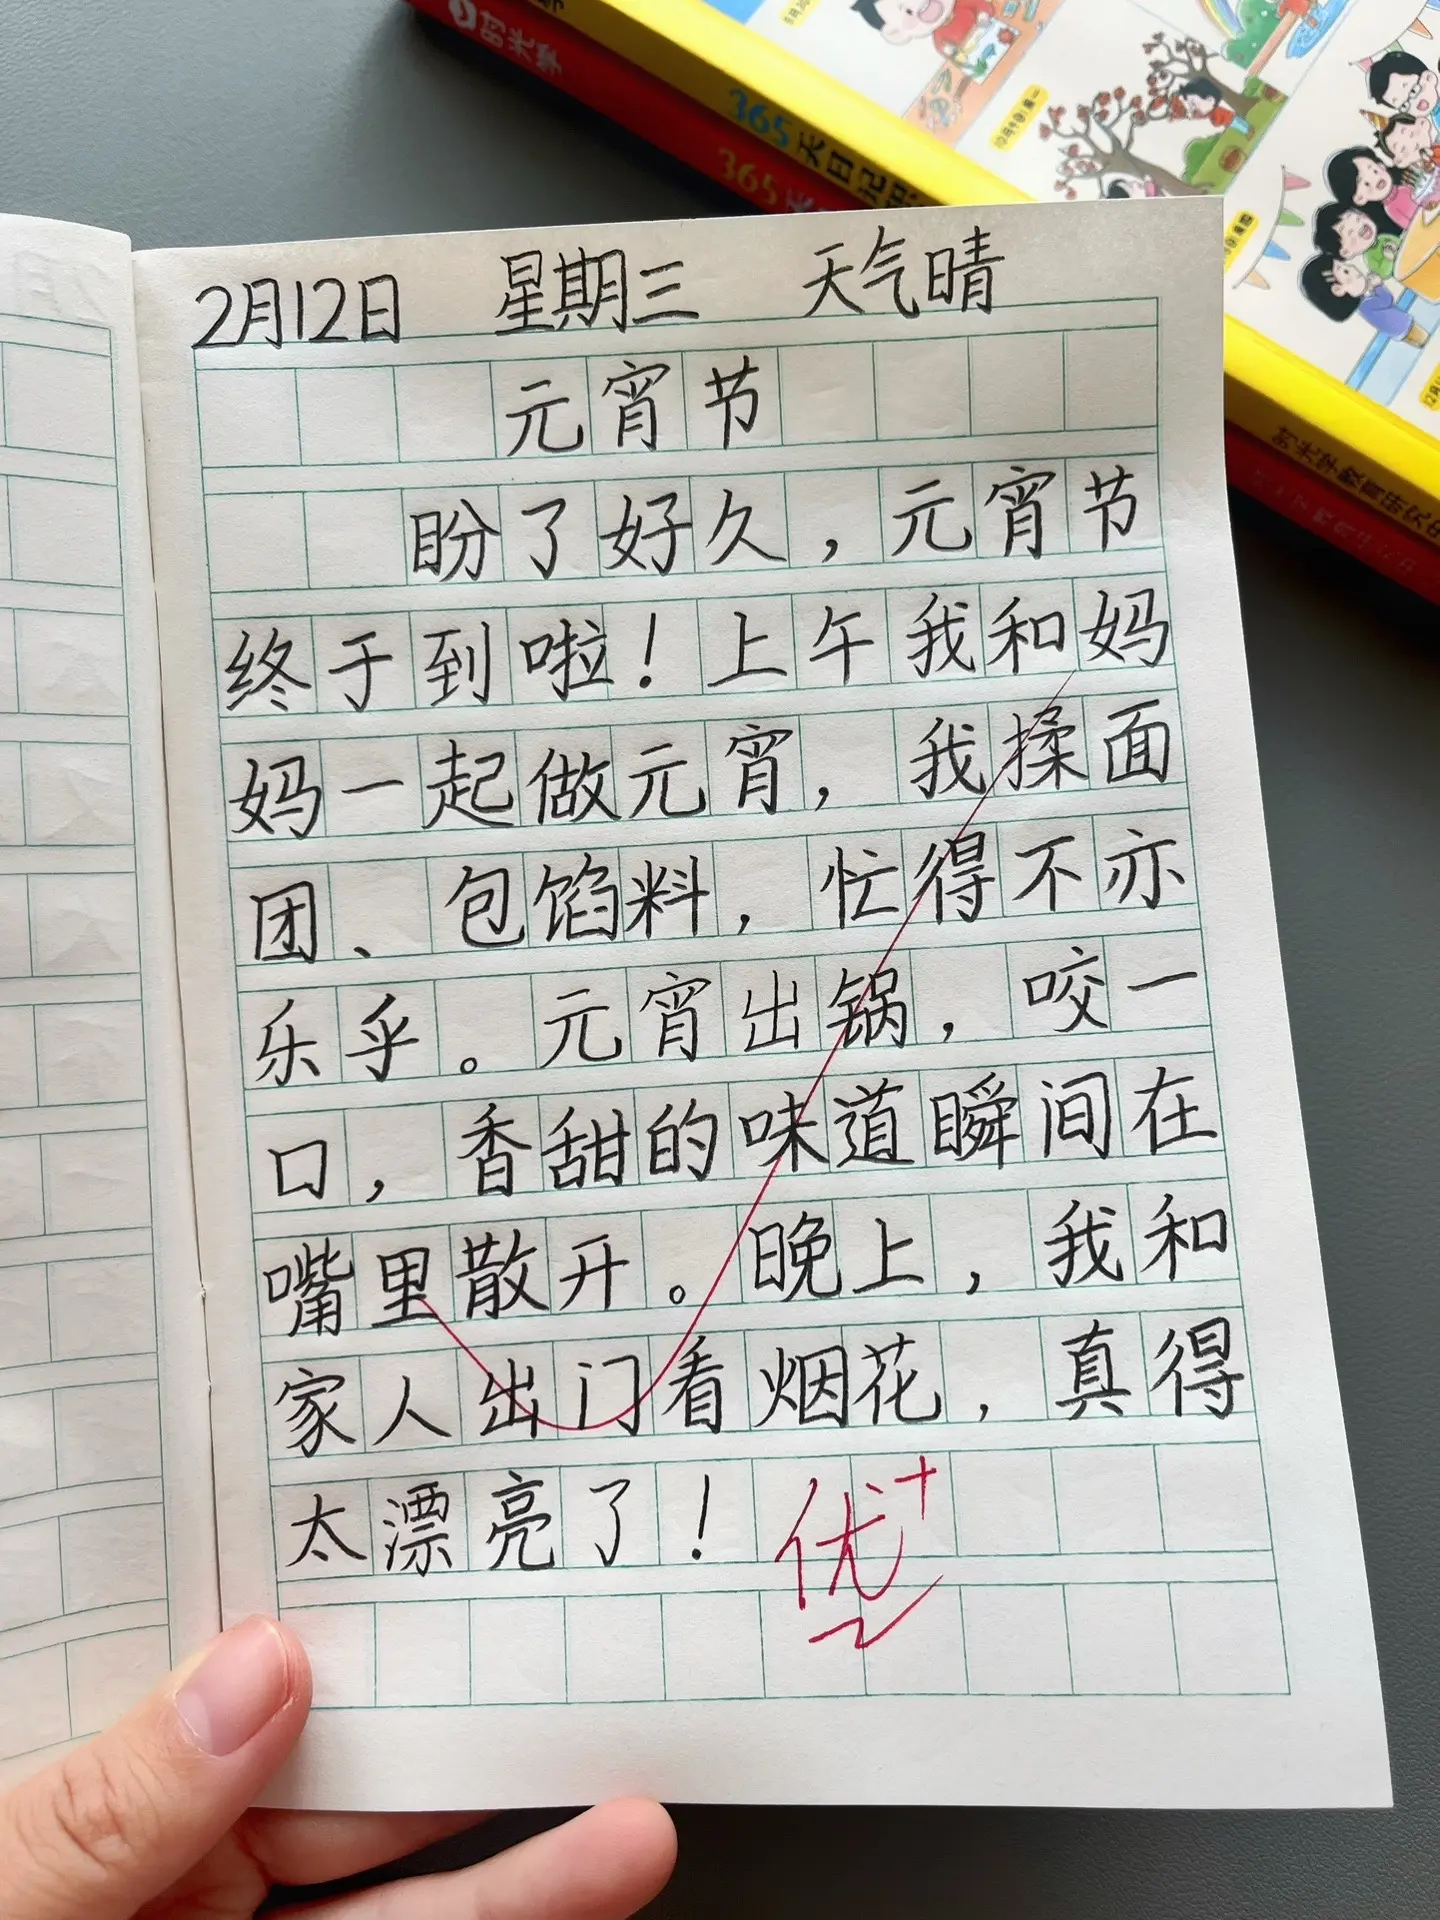 时光学
365天日记
365天
时光学教育研究中
2月12日 星期三 天气晴
元宵节
盼了好久，元宵节
终于到啦！上午我和妈
妈一起做元宵，我揉面
团、包馅料，忙得不亦
乐乎。元宵出锅，咬一
口，香甜的味道瞬间在
嘴里散开。晚上，我和
家人出门看烟花，真得
太漂亮了！
优+